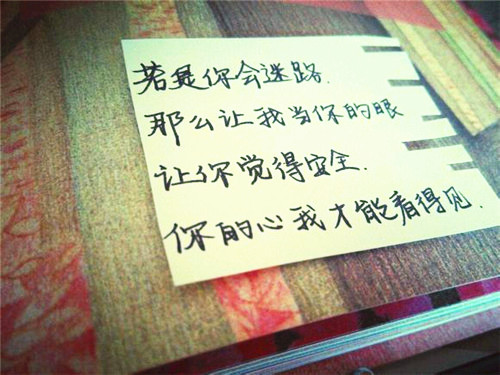 若是你会迷路.
那么让我当你的眼
让你觉得安全.
你的心我才能看得见.